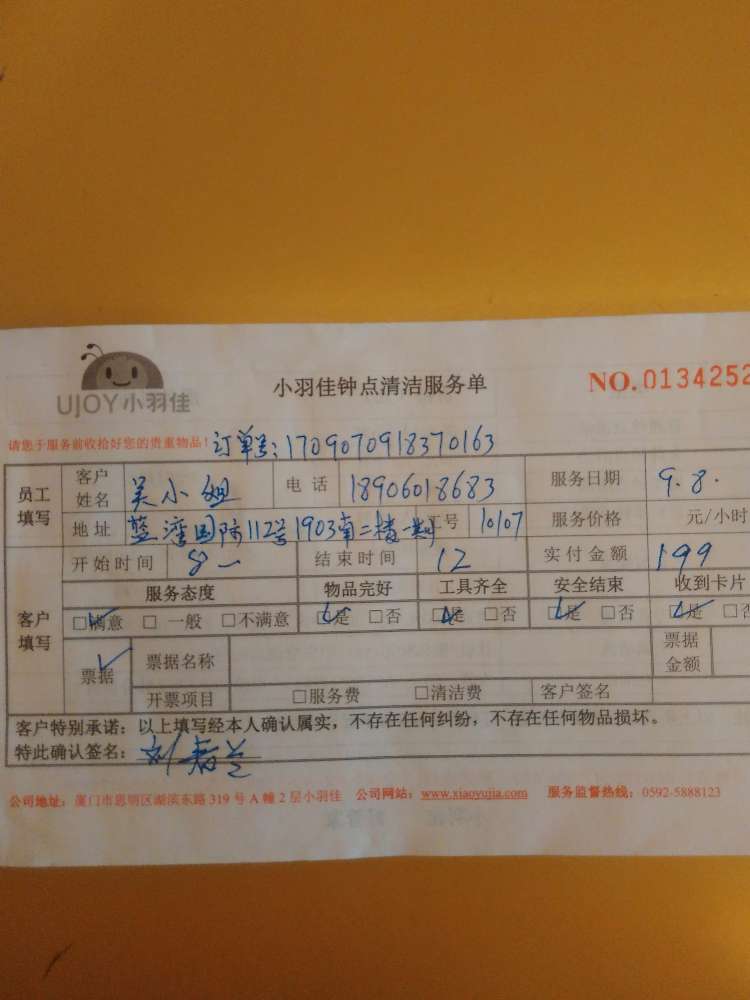 UJOY小羽佳
小羽佳钟点清洁服务单
NO.0134252
请您于服务前收拾好您的贵重物品！ 订单号：1709070918370163
员工填写 客户姓名 吴小姐 电话 18906018683 服务日期 9.8.
地址 蓝湾国际112号1903南二楼一期 工号 10107 服务价格 元/小时
客户填写 开始时间 8一 结束时间 12 实付金额 199
服务态度 物品完好 工具齐全 安全结束 收到卡片
☑满意 □一般 □不满意 ☑是 □否 ☑是 □否 ☑是 □否 ☑是 □否
票据 票据名称 票据金额
开票项目 □服务费 □清洁费 客户签名
客户特别承诺：以上填写经本人确认属实，不存在任何纠纷，不存在任何物品损坏。
特此确认签名：
公司地址：厦门市思明区湖滨东路 319 号 A 幢 2 层小羽佳 公司网站：www.xiaoyujia.com 服务监督热线：0592-5888123